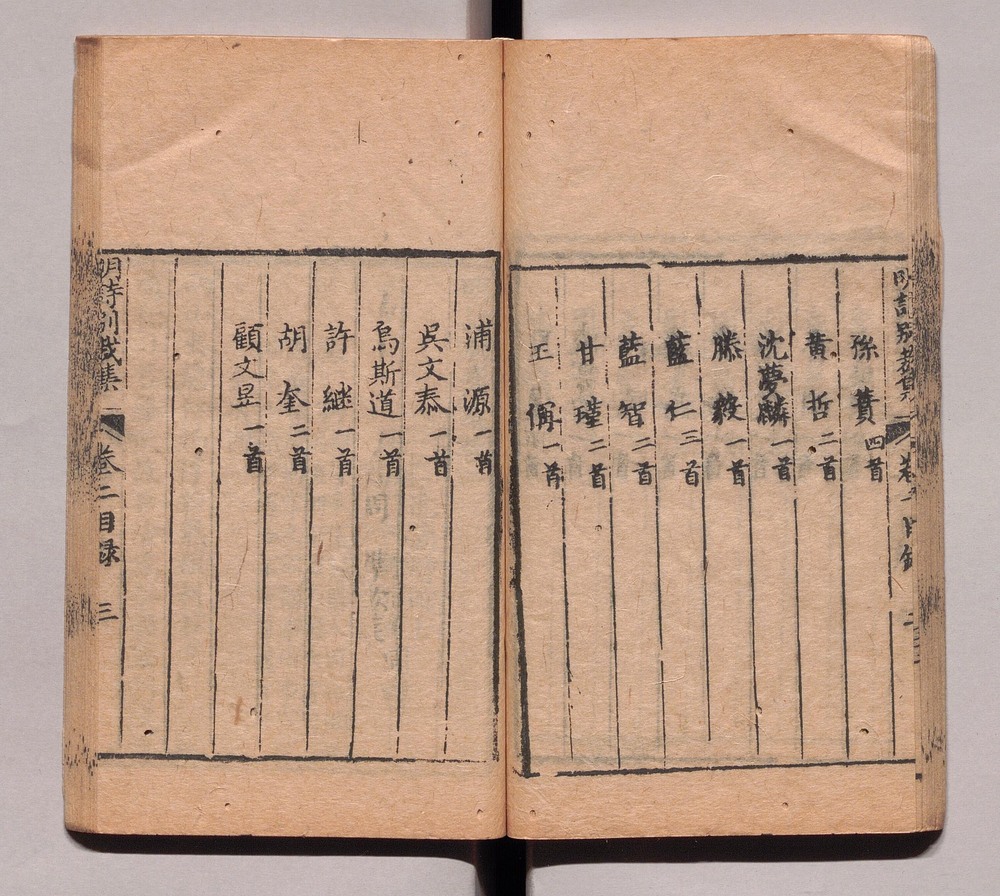 孫蕡四首
黃哲二首
沈夢麟一首
滕毅一首
藍仁三首
藍智二首
甘瑾二首
王偁一首
浦源一首
吳文泰一首
烏斯道一首
許継一首
胡奎二首
顧文昱一首
明詩別裁集 卷二目録 三